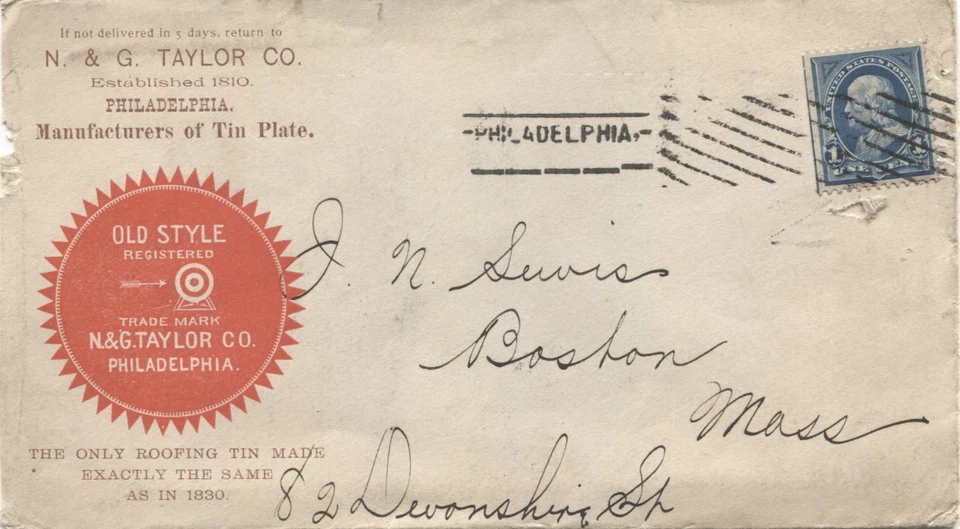 If not delivered in 5 days, return to
N. & G. TAYLOR CO.
Established 1810.
PHILADELPHIA.
Manufacturers of Tin Plate.
PHILADELPHIA.
UNITED STATES POSTAGE
1
OLD STYLE
REGISTERED
TRADE MARK
N.&G.TAYLOR CO.
PHILADELPHIA.
THE ONLY ROOFING TIN MADE
EXACTLY THE SAME
AS IN 1830.
J. N. Lewis
Boston
Mass
82 Devonshire St